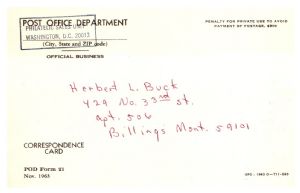 POST OFFICE DEPARTMENT
PHILATELIC SALES UNIT
WASHINGTON, D.C. 20013
(City, State and ZIP code)
OFFICIAL BUSINESS
PENALTY FOR PRIVATE USE TO AVOID
PAYMENT OF POSTAGE, $300
Herbert L. Buck
429 No. 33rd st.
apt. 506
Billings Mont. 59101
CORRESPONDENCE
CARD
POD Form 21
Nov. 1963